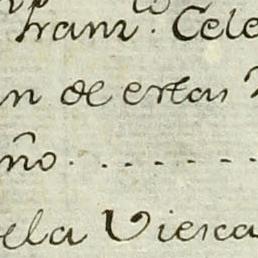 Franz. Cele
n de estas
ño . . . . . . .
ela Viesca